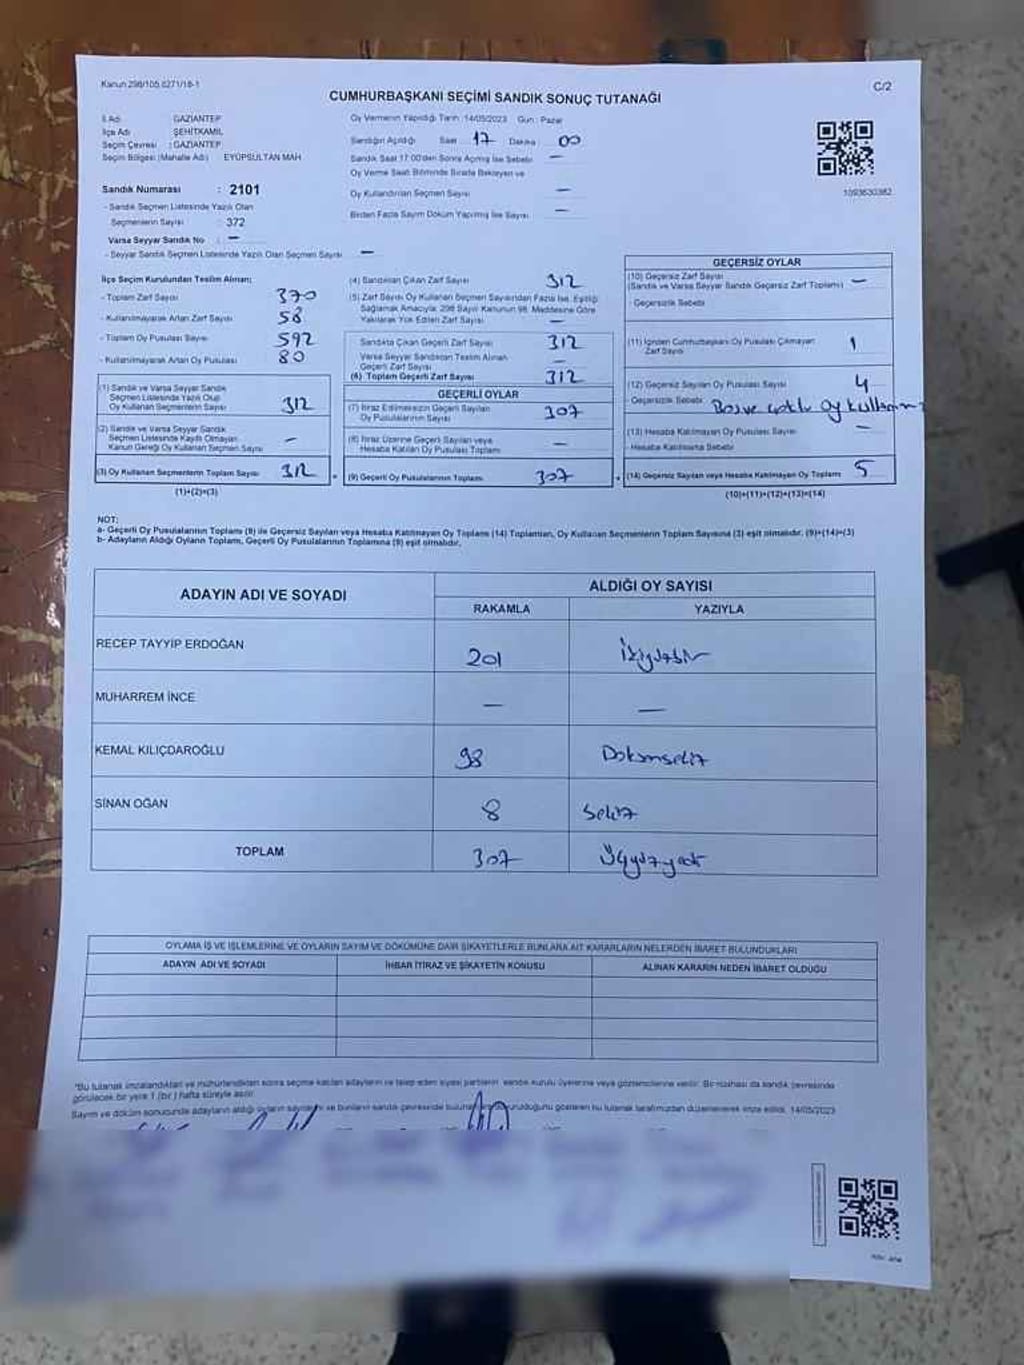 Kanun 298/105,6271/18-1
C/2
CUMHURBAŞKANI SEÇİMİ SANDIK SONUÇ TUTANAĞI
İl Adı GAZİANTEP
İlçe Adı ŞEHİTKAMİL
Seçim Çevresi : GAZİANTEP
Seçim Bölgesi (Mahalle Adı) EYÜPSULTAN MAH
Sandık Numarası : 2101
- Sandık Seçmen Listesinde Yazılı Olan
Seçmenlerin Sayısı : 372
Varsa Seyyar Sandık No : —
- Seyyar Sandık Seçmen Listesinde Yazılı Olan Seçmen Sayısı —
Oy Vermenin Yapıldığı Tarih : 14/05/2023 Gün : Pazar
Sandığın Açıldığı Saat 17 Dakika 00
Sandık Saat 17.00'den Sonra Açılmış İse Sebebi —
Oy Verme Saati Bitiminde Sırada Bekleyen ve
Oy Kullandırılan Seçmen Sayısı —
Birden Fazla Sayım Döküm Yapılmış İse Sayısı —
1093630382
İlçe Seçim Kurulundan Teslim Alınan;
- Toplam Zarf Sayısı 370
- Kullanılmayarak Artan Zarf Sayısı 58
- Toplam Oy Pusulası Sayısı 592
- Kullanılmayarak Artan Oy Pusulası 80
(1) Sandık ve Varsa Seyyar Sandık
Seçmen Listesinde Yazılı Olup
Oy Kullanan Seçmenlerin Sayısı 312
(2) Sandık ve Varsa Seyyar Sandık
Seçmen Listesinde Kayıtlı Olmayan
Kanun Gereği Oy Kullanan Seçmen Sayısı —
(3) Oy Kullanan Seçmenlerin Toplam Sayısı 312
(1)+(2)=(3)
(4) Sandıktan Çıkan Zarf Sayısı 312
(5) Zarf Sayısı Oy Kullanan Seçmen Sayısından Fazla İse, Eşitliği
Sağlamak Amacıyla, 298 Sayılı Kanunun 98. Maddesine Göre
Yakılarak Yok Edilen Zarf Sayısı —
Sandıkta Çıkan Geçerli Zarf Sayısı 312
Varsa Seyyar Sandıktan Teslim Alınan
Geçerli Zarf Sayısı —
(6) Toplam Geçerli Zarf Sayısı 312
GEÇERLİ OYLAR
(7) İtiraz Edilmeksizin Geçerli Sayılan
Oy Pusulalarının Sayısı 307
(8) İtiraz Üzerine Geçerli Sayılan veya
Hesaba Katılan Oy Pusulası Toplamı —
(9) Geçerli Oy Pusulalarının Toplamı 307
GEÇERSİZ OYLAR
(10) Geçersiz Zarf Sayısı
(Sandık ve Varsa Seyyar Sandık Geçersiz Zarf Toplamı) —
- Geçersizlik Sebebi
(11) İçinden Cumhurbaşkanı Oy Pusulası Çıkmayan
Zarf Sayısı 1
(12) Geçersiz Sayılan Oy Pusulası Sayısı 4
- Geçersizlik Sebebi Boş ve çoklu oy kullanımı
(13) Hesaba Katılmayan Oy Pusulası Sayısı —
- Hesaba Katılmama Sebebi
(14) Geçersiz Sayılan veya Hesaba Katılmayan Oy Toplamı 5
(10)+(11)+(12)+(13)=(14)
NOT:
a- Geçerli Oy Pusulalarının Toplamı (9) ile Geçersiz Sayılan veya Hesaba Katılmayan Oy Toplamı (14) Toplamları, Oy Kullanan Seçmenlerin Toplam Sayısına (3) eşit olmalıdır. (9)+(14)=(3)
b- Adayların Aldığı Oyların Toplamı, Geçerli Oy Pusulalarının Toplamına (9) eşit olmalıdır.
ADAYIN ADI VE SOYADI
ALDIĞI OY SAYISI
RAKAMLA YAZIYLA
RECEP TAYYİP ERDOĞAN 201 İkiyüzbir
MUHARREM İNCE — —
KEMAL KILIÇDAROĞLU 98 Doksansekiz
SİNAN OĞAN 8 Sekiz
TOPLAM 307 Üçyüzyedi
OYLAMA İŞ VE İŞLEMLERİNE VE OYLARIN SAYIM VE DÖKÜMÜNE DAİR ŞİKAYETLERLE BUNLARA AİT KARARLARIN NELERDEN İBARET BULUNDUKLARI
ADAYIN ADI VE SOYADI İHBAR İTİRAZ VE ŞİKAYETİN KONUSU ALINAN KARARIN NEDEN İBARET OLDUĞU
"Bu tutanak imzalandıktan ve mühürlendikten sonra seçime katılan adayların ve talep eden siyasi partilerin sandık kurulu üyelerine veya gözlemcilerine verilir. Bir nüshası da sandık çevresinde
görülecek bir yere 1 (bir) hafta süreyle asılır.
Sayım ve döküm sonucunda adayların aldığı oyların sayısını ve bunların sandık çevresinde duyurulduğunu gösteren bu tutanak tarafımızdan düzenlenerek imza edildi. 14/05/2023